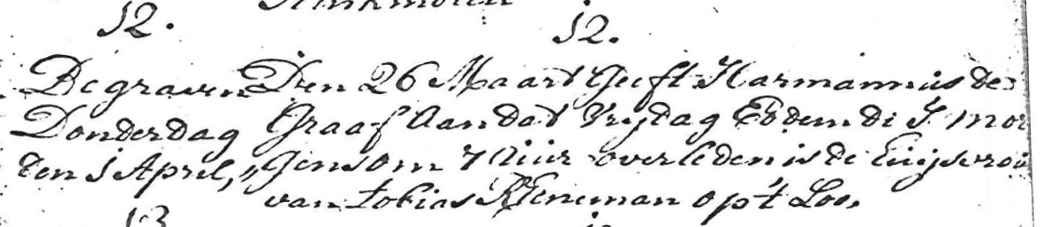 12. 12.
Begraven Den 26 Maart Geeft Harmannus de
Donderdag Graaf Aan dat Vrijdag Eodem di S mor
den 1 April, gens om 7 Uur overleden is de Huijsvrou
van Tobias Renneman op 't Loo.
13